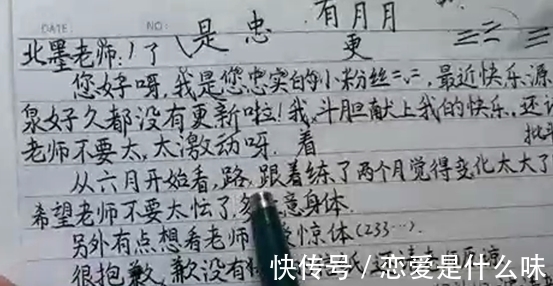 DATE: NO:
是 忠 有月月
北墨老师:了 更
您好呀,我是您忠实的小粉丝二.二,最近快乐源
泉好久都没有更新啦!我,斗胆献上我的快乐,还
老师不要太,太激动呀. 着
从六月开始看,路,跟着练了两个月觉得变化太大了
希望老师不要太怯了,多 意身体.
另外有点想看老师 惊体(233…)
很抱歉,歉没有
快传号/恋爱是什么味